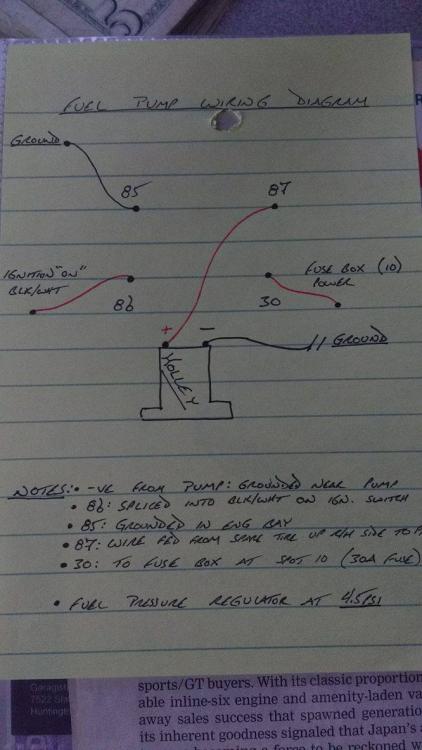 FUEL PUMP WIRING DIAGRAM
GROUND
85
87
IGNITION "ON"
BLK/WHT
86
FUSE BOX (10)
POWER
30
+ −
HOLLEY
GROUND
NOTES: • -VE FROM PUMP: GROUNDED NEAR PUMP
• 86: SPLICED INTO BLK/WHT ON IGN. SWITCH
• 85: GROUNDED IN ENG BAY
• 87: WIRE FED FROM SPARE TIRE UP R/H SIDE TO
• 30: TO FUSE BOX AT SPOT 10 (30A FUSE)
• FUEL PRESSURE REGULATOR AT 4.5PSI
Garagist
7522 Sla
Huntingt
sports/GT buyers. With its classic proportion
able inline-six engine and amenity-laden va
away sales success that spawned generatio
its inherent goodness signaled that Japan's a
a force to be reckoned w